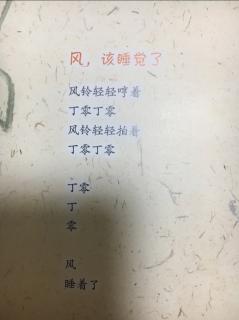 风，该睡觉了
风铃轻轻哼着
丁零丁零
风铃轻轻拍着
丁零丁零
丁零
丁
零
风
睡着了